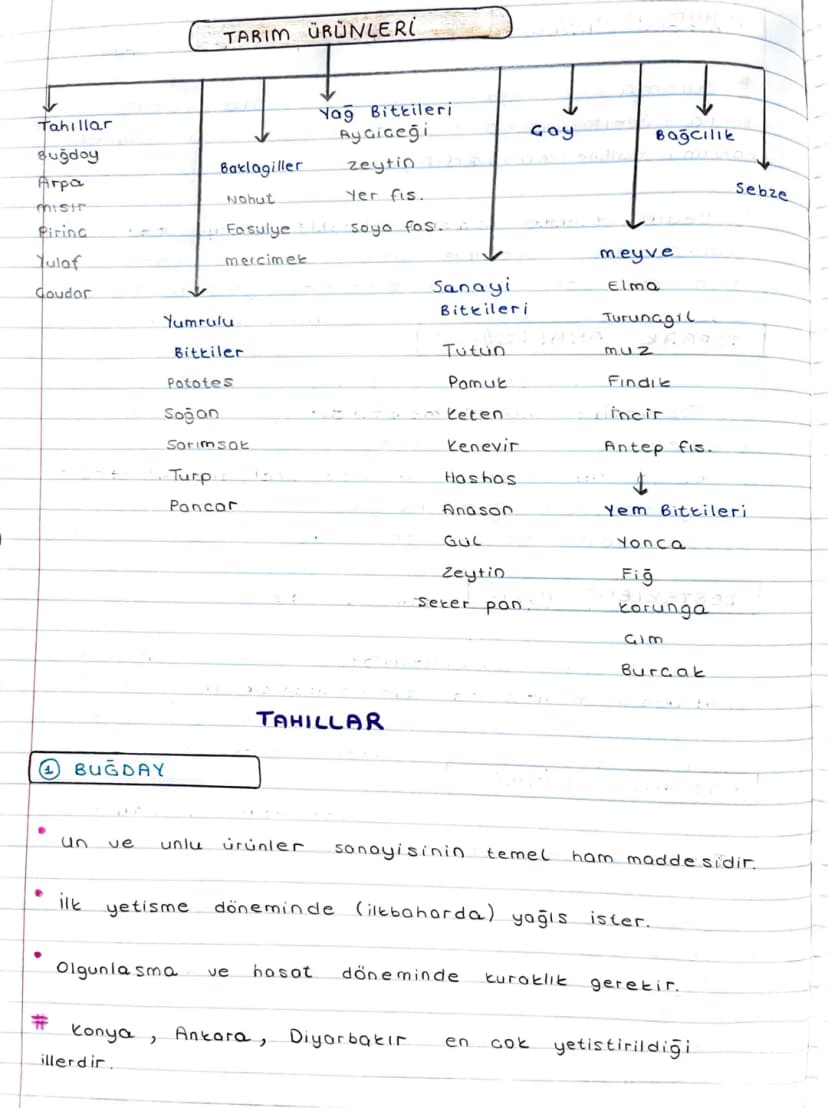 TARIM ÜRÜNLERİ
Tahıllar
Buğday
Arpa
mısır
Pirinc
Yulaf
Çavdar
Yumrulu
Bitkiler
Patates
Soğan
Sarımsak
Turp
Pancar
Baklagiller
Nohut
Fasulye
mercimek
Yağ Bitkileri
Ayciceği
zeytin
Yer fıs.
soya fas.
Sanayi
Bitkileri
Tütün
Pamuk
Keten
Kenevir
Hashas
Anason
Gül
Zeytin
Seker pan.
Çay
meyve
Elma
Turunçgil
muz
Fındık
İncir
Antep fıs.
Yem Bitkileri
Yonca
Fiğ
Korunga
Çim
Burcak
Bağcılık
Sebze
TAHILLAR
1 BUĞDAY
• un ve unlu ürünler sanayisinin temel ham maddesidir.
• İlk yetisme döneminde (ilkbaharda) yağıs ister.
• Olgunlasma ve hasat döneminde kuraklık gerekir.
# Konya, Ankara, Diyarbakır en cok yetistirildiği
illerdir.